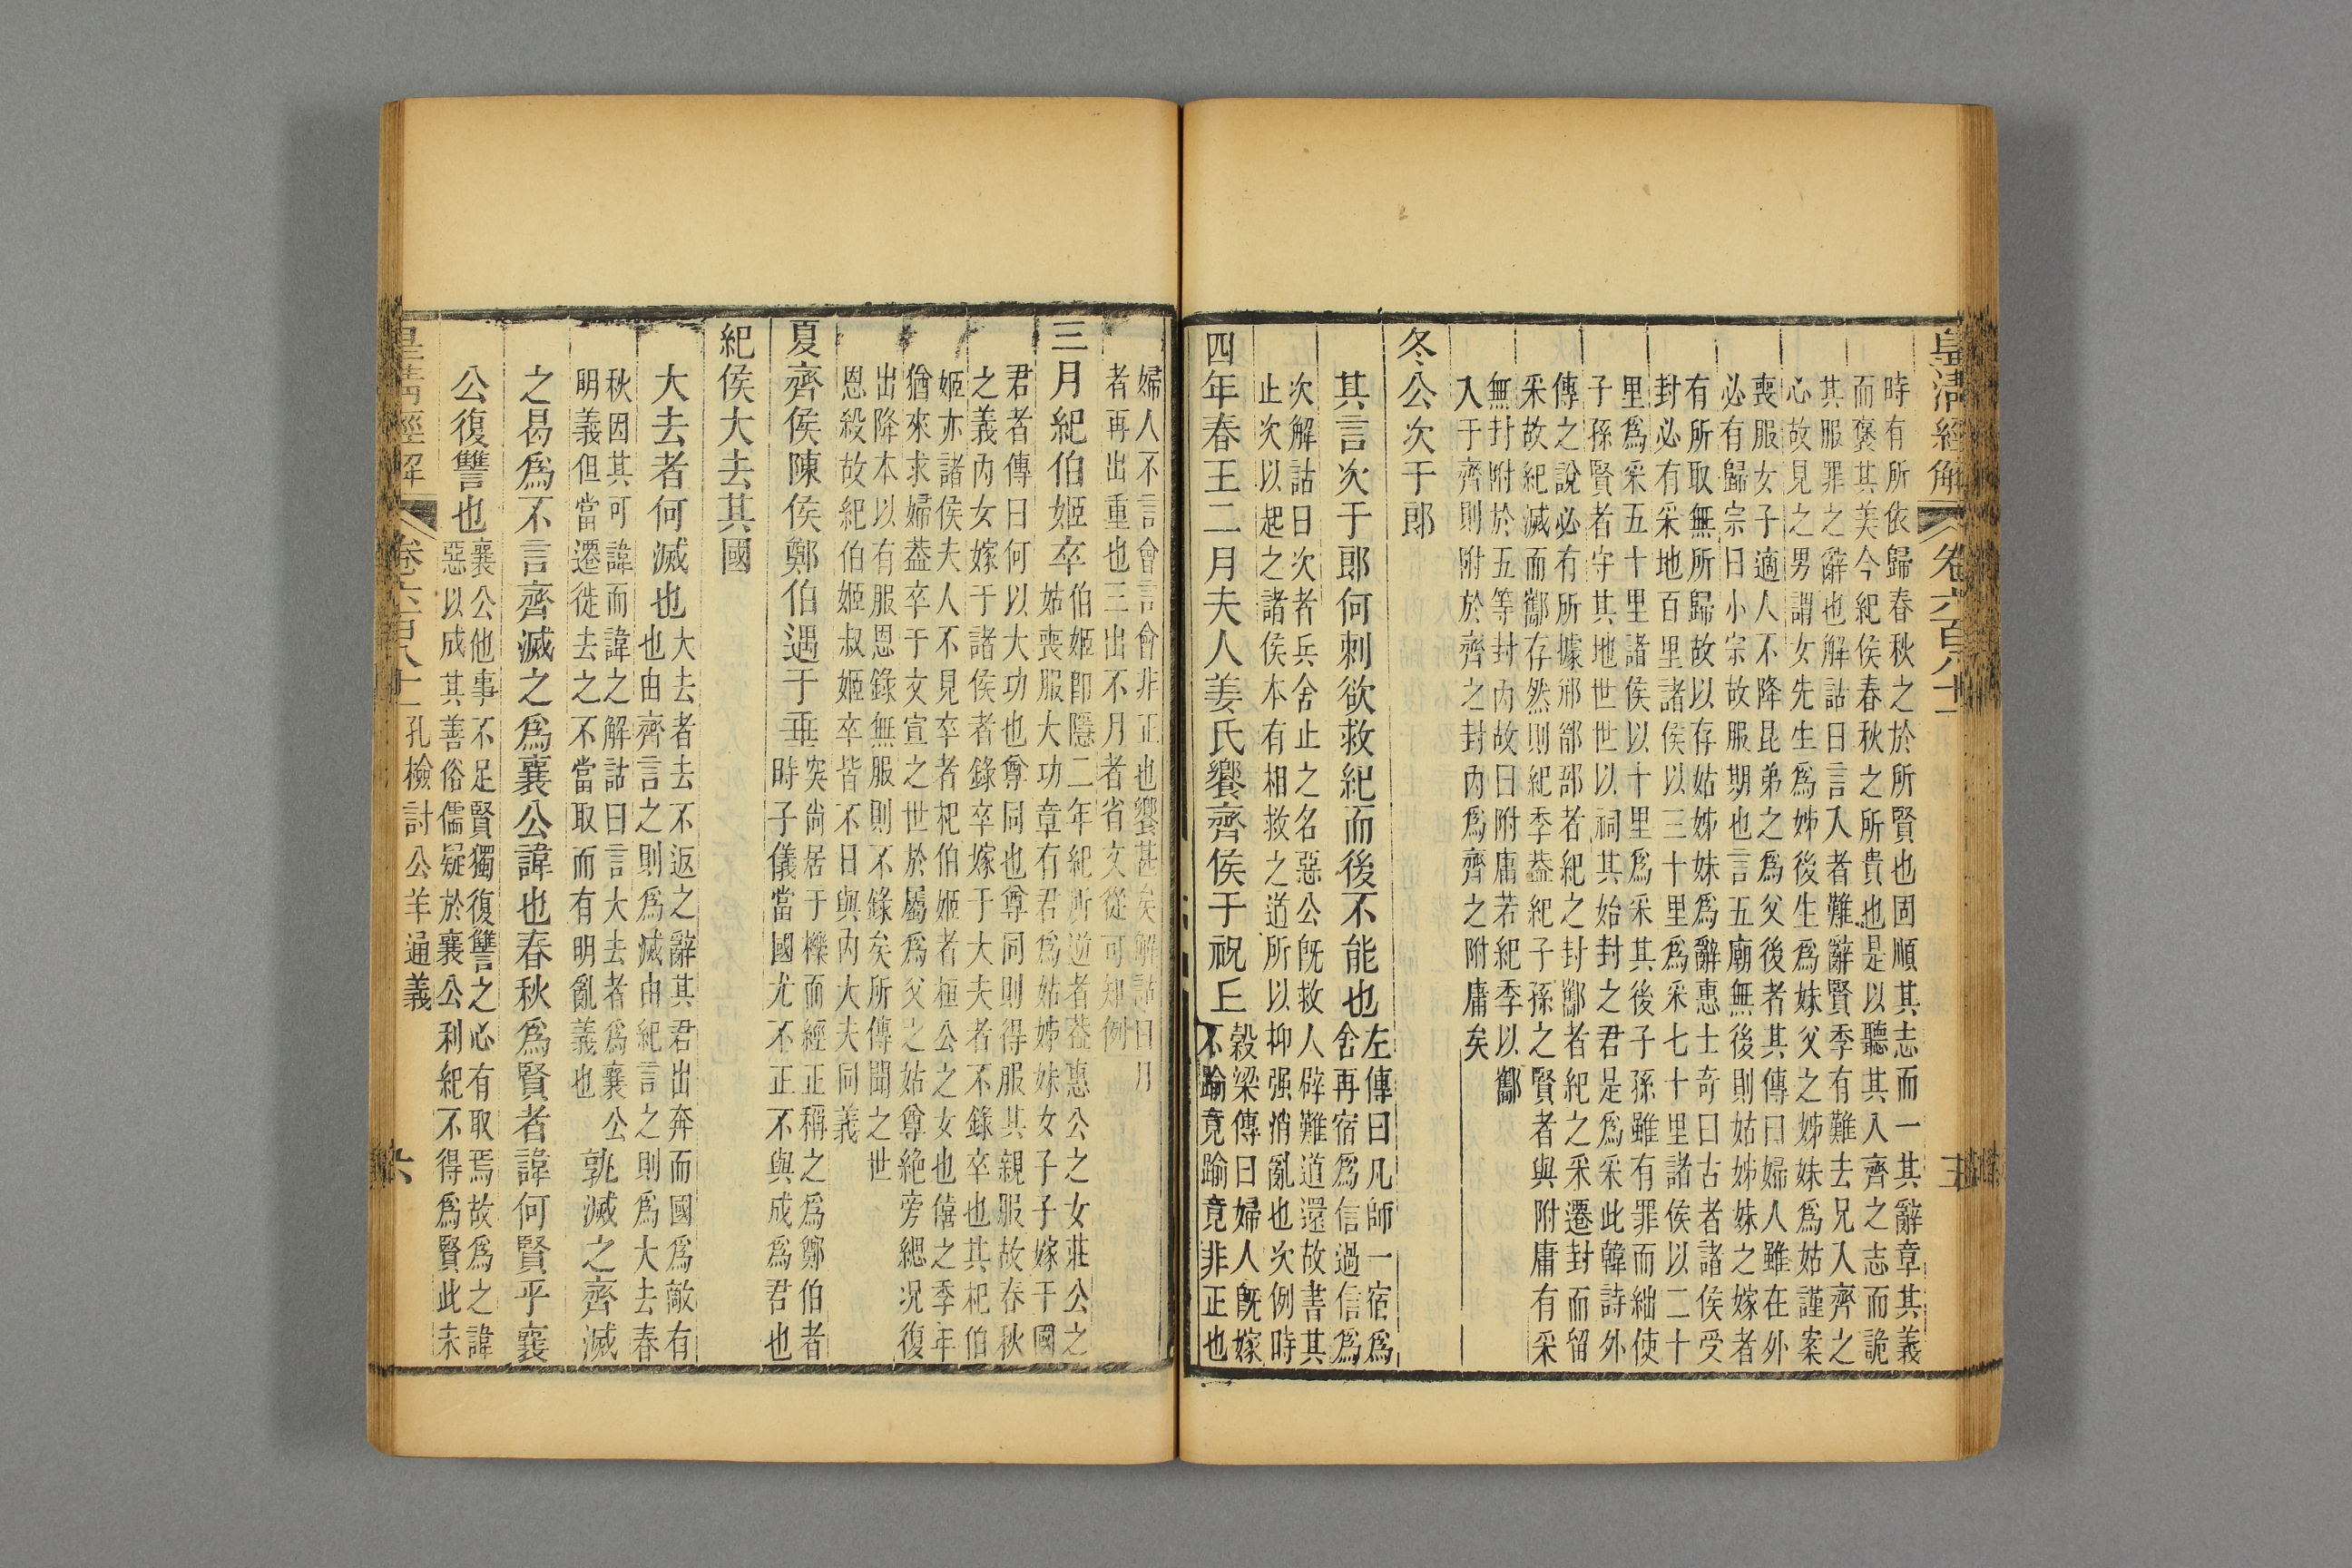 皇清經解 卷六百八十一 五
時有所依歸春秋之於所賢也固順其志而一其辭章其義
而褒其美今紀侯春秋之所貴也是以聽其入齊之志而詭
其服罪之辭也解詁曰言入者難辭賢季有難去兄入齊之
心故見之男謂女先生爲姊後生爲妹父之姊妹爲姑謹案
喪服女子適人不降昆弟之爲父後者其傳曰婦人雖在外
必有歸宗曰小宗故服期也言五廟無後則姑姊妹之嫁者
有所取無所歸故以存姑姊妹爲辭惠士奇曰古者諸侯受
封必有采地百里諸侯以三十里爲采七十里諸侯以二十
里爲采五十里諸侯以十里爲采其後子孫雖有罪而絀使
子孫賢者守其地世世以祠其始封之君是爲采此韓詩外
傳之說必有所據郱鄑郚者紀之封酅者紀之采遷封而留
采故紀滅而酅存然則紀季葢紀子孫之賢者與附庸有采
無封附於五等封内故曰附庸若紀季以酅
入于齊則附於齊之封内爲齊之附庸矣
冬公次于郎
其言次于郎何刺欲救紀而後不能也
左傳曰凡師一宿爲
舍再宿爲信過信爲
次解詁曰次者兵舍止之名惡公旣救人辟難道還故書其
止次以起之諸侯本有相救之道所以抑强消亂也次例時
四年春王二月夫人姜氏饗齊侯于祝丘
榖梁傳曰婦人旣嫁
不踰竟踰竟非正也
婦人不言會言會非正也饗甚矣解詁曰月
者再出重也三出不月者省文從可知例
三月紀伯姬卒
伯姬卽隱二年紀所逆者葢惠公之女莊公之
姑喪服大功章有君爲姑姊妹女子子嫁于國
君者傳曰何以大功也尊同也尊同則得服其親服故春秋
之義内女嫁于諸侯者錄卒嫁于大夫者不錄卒也其杞伯
姬亦諸侯夫人不見卒者杞伯姬者桓公之女也僖之季年
猶來求婦葢卒于文宣之世於屬爲父之姑尊絶旁緦况復
出降本以有服恩錄無服則不錄矣所傳聞之世
恩殺故紀伯姬叔姬卒皆不日與内大夫同義
夏齊侯陳侯鄭伯遇于垂
突尙居于櫟而經正稱之爲鄭伯者
時子儀當國尤不正不與成爲君也
紀侯大去其國
大去者何滅也
大去者去不返之辭其君出奔而國爲敵有
也由齊言之則爲滅由紀言之則爲大去春
秋因其可諱而諱之解詁曰言大去者爲襄公
明義但當遷徙去之不當取而有明亂義也
孰滅之齊滅
之曷爲不言齊滅之爲襄公諱也春秋爲賢者諱何賢乎襄
公復讐也
襄公他事不足賢獨復讐之心有取焉故爲之諱
惡以成其善俗儒疑於襄公利紀不得爲賢此未
皇清經解 卷六百八十一 孔檢討公羊通義 六